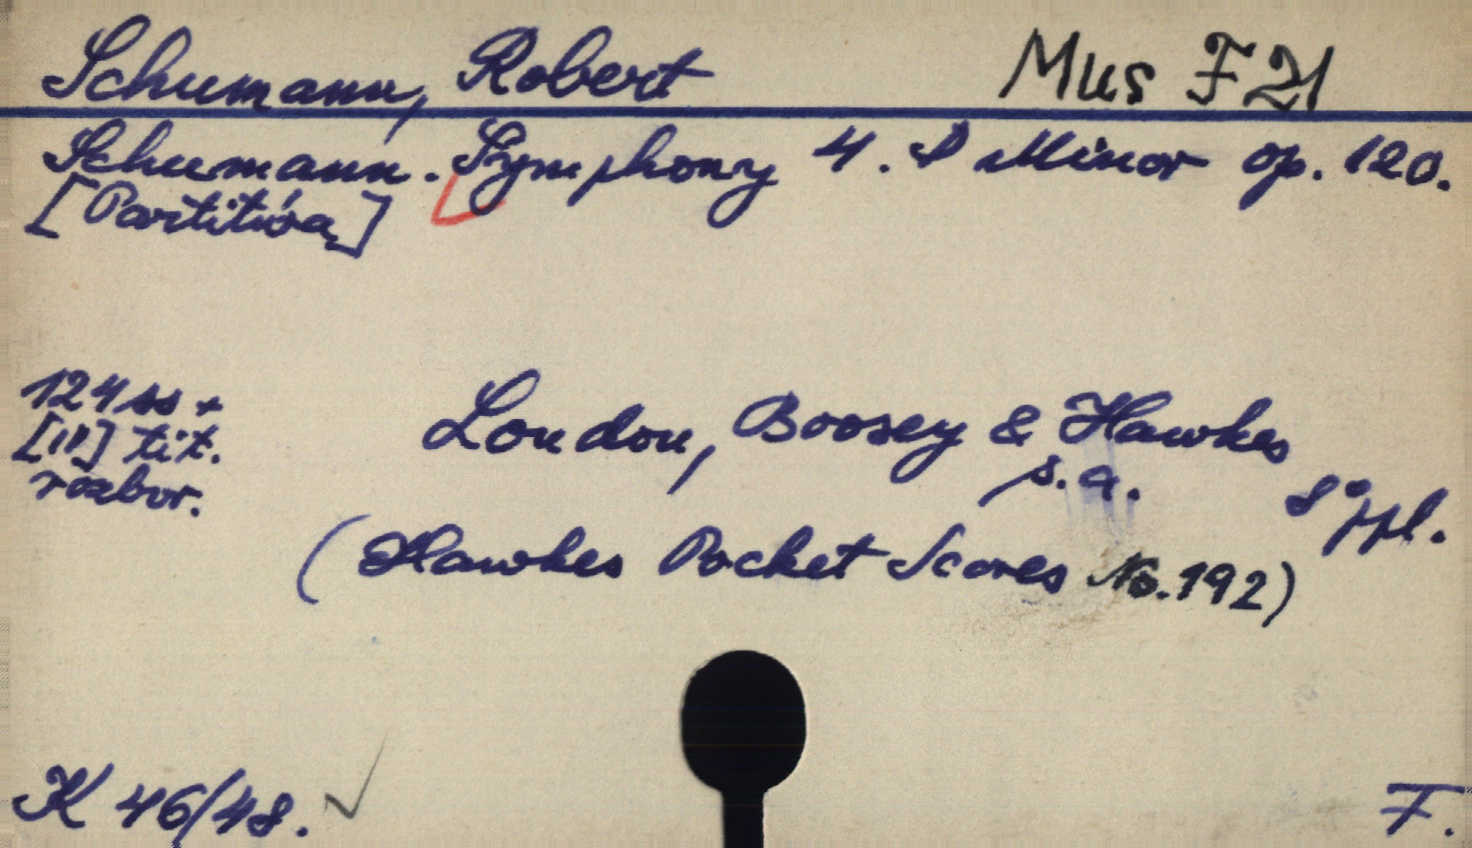 Schumann, Robert Mus F 21
Schumann. Symphony 4. D Minor op. 120.
[Partitúra]
124 ss +
[II] tit.
rozbor.
London, Boosey & Hawkes
s.a. 8°
(Hawkes Pocket Scores No. 192)
K 46/48.
F.